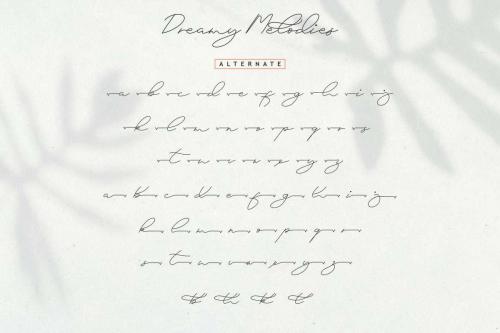 Dreamy Melodies
ALTERNATE
a b c d e f g h i j
k l m n o p q r o s
t u v w x y z
a b c d e f g h i j
k l m n o p q r
s t u v w x y z